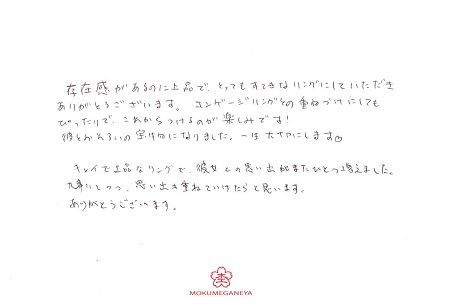 存在感があるのに上品で、とってもすてきなリングにしていただき
ありがとうございます。エンゲージリングとの重ねづけにしても
ぴったりで、これからつけるのが楽しみです!
彼とおそろいの宝物になりました。一生大切にします♡
キレイで上品なリングで、彼女との思い出がまたひとつ増えました。
大事にしつつ、思い出を重ねていけたらと思います。
ありがとうございます。
MOKUMEGANEYA